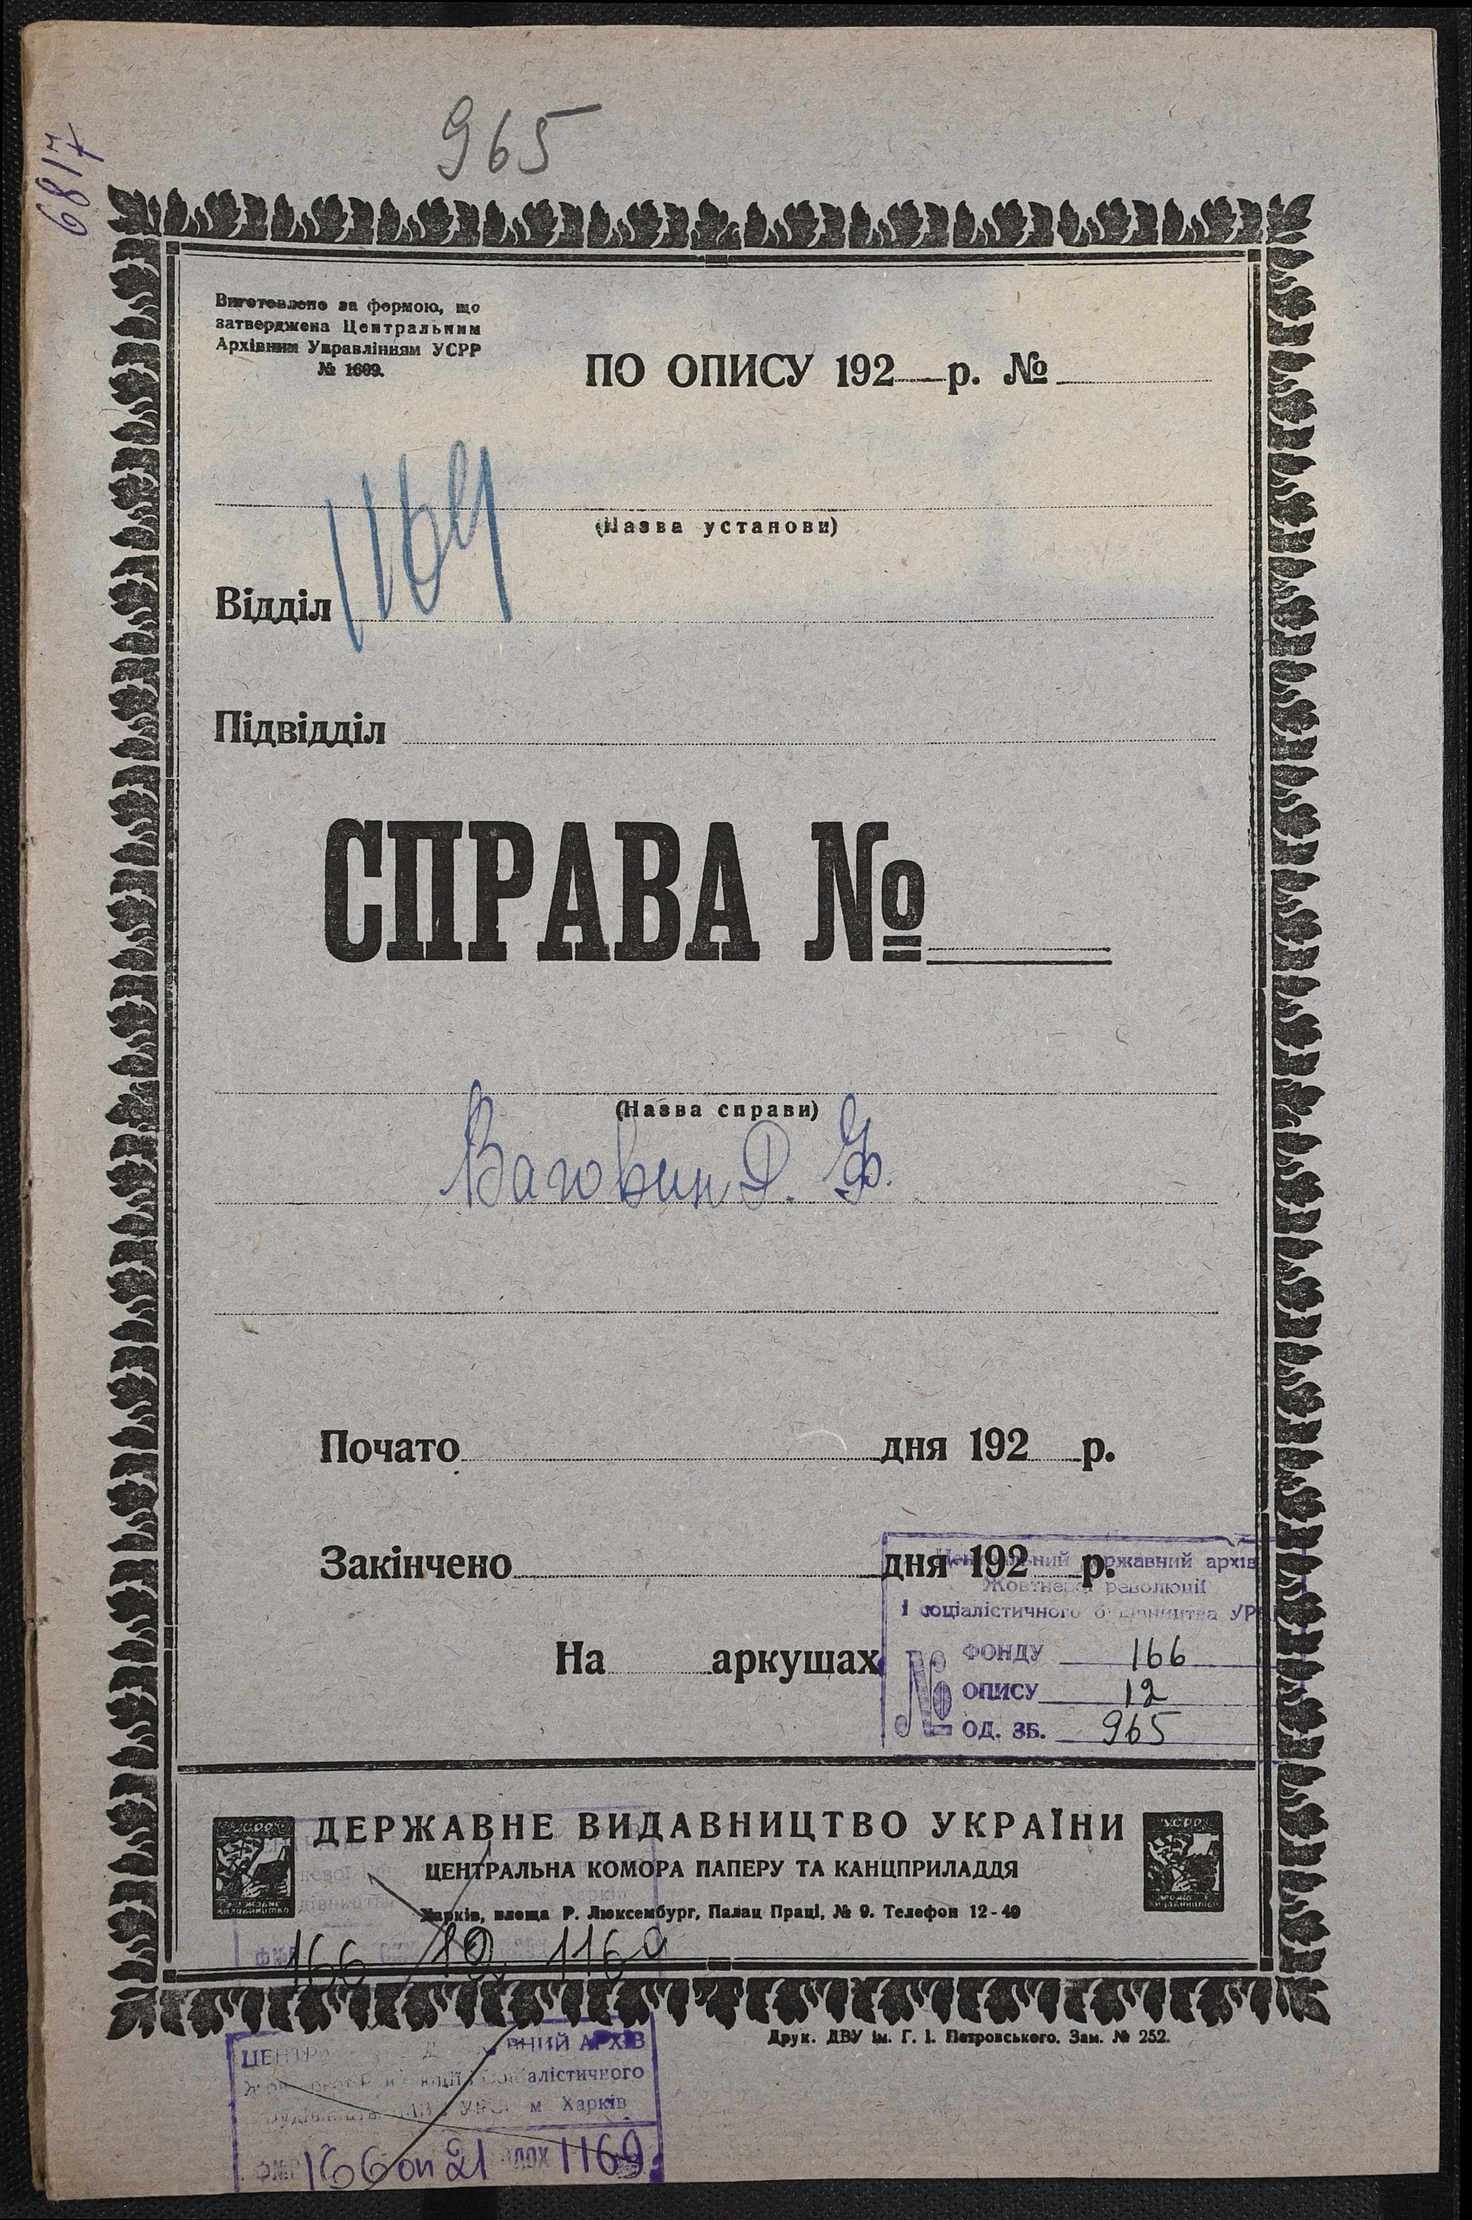 965
6817
Виготовлено за формою, що
затверджена Центральним
Архівним Управлінням УСРР
№ 1609.
ПО ОПИСУ 192 р. №
(Назва установи)
1164
Відділ
Підвідділ
СПРАВА №
(Назва справи)
Ваговин Д. Ф.
Почато дня 192 р.
Закінчено дня 192 р.
На аркушах
державний архів
Жовтневої революції
і соціалістичного будівництва УР
№ ФОНДУ 166
ОПИСУ 12
ОД. ЗБ. 965
ДЕРЖАВНЕ ВИДАВНИЦТВО УКРАЇНИ
ЦЕНТРАЛЬНА КОМОРА ПАПЕРУ ТА КАНЦПРИЛАДДЯ
Харків, площа Р. Люксембург, Палац Праці, № 9. Телефон 12-49
166
Друк. ДВУ ім. Г. І. Петровського. Зам. № 252.
АРХІВ
м Харків
166 оп 21 1169